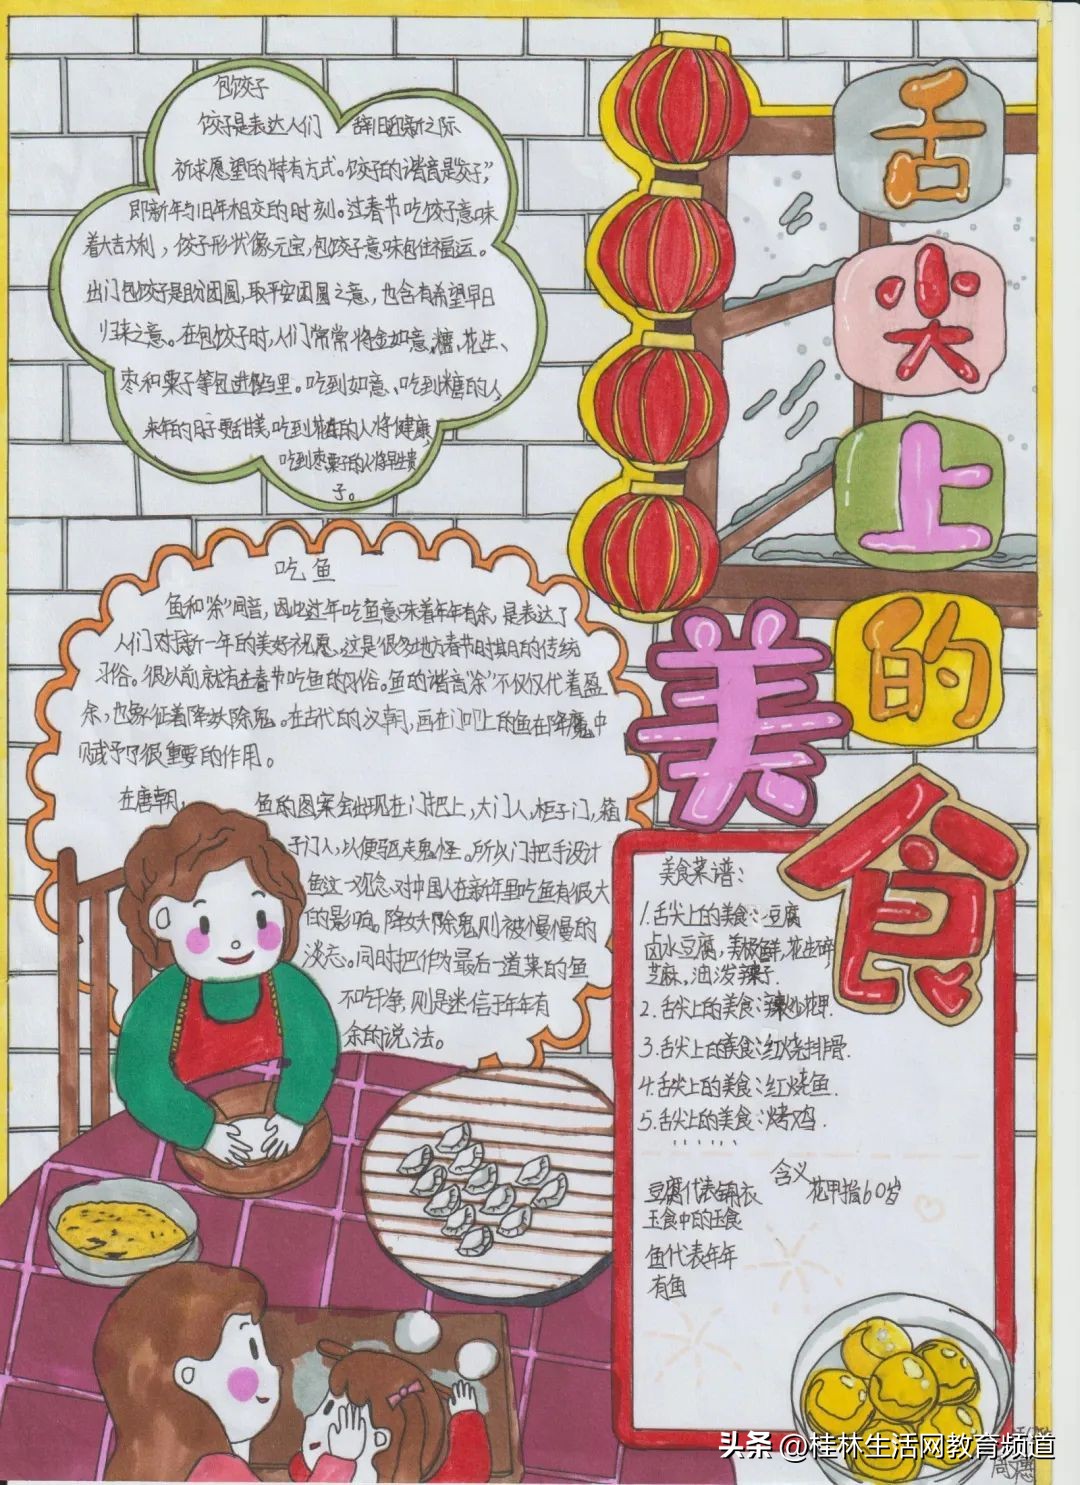 舌尖上的美食
包饺子
饺子是表达人们 辞旧迎新之际
祈求愿望的特有方式。饺子的谐音是"交子",
即新年与旧年相交的时刻。过春节吃饺子意味
着大吉大利,饺子形状像元宝,包饺子意味包住福运。
出门包饺子是盼团圆,取平安团圆之意,也含有希望早日
归来之意。在包饺子时,人们常常将金如意、糖、花生、
枣和栗子等包进馅里。吃到如意、吃到糖的人,
来年的日子更甜美,吃到花生的人将健康,
吃到枣栗子的人将早生贵
子。
吃鱼
鱼和"余"同音,因此过年吃鱼意味着年年有余,是表达了
人们对新一年的美好祝愿,这是很多地方春节时期的传统
习俗。很以前就有在春节吃鱼的习俗。鱼的谐音"余"不仅仅代着盈
余,也象征着降妖除鬼。在古代的汉朝,画在门上的鱼在降魔中
赋予了很重要的作用。
在唐朝,
鱼的图案会出现在门把上,大门人,柜子门,箱
子门人,以便驱走鬼怪。所以门把手设计
鱼这一观念,对中国人在新年里吃鱼有很大
的影响。降妖除鬼则被慢慢的
淡忘。同时把作为最后一道菜的鱼
不吃干净,则是迷信于年年有
余的说法。
美食菜谱:
1.舌尖上的美食:豆腐
卤水豆腐,美极鲜,花生碎
芝麻,油泼辣子
2.舌尖上的美食:辣炒花甲.
3.舌尖上的美食:红烧排骨.
4.舌尖上的美食:红烧鱼.
5.舌尖上的美食:烤鸡.
......
含义
豆腐代表锦衣
玉食中的玉食
花甲指60岁
鱼代表年年
有鱼
头条 @桂林生活网教育频道